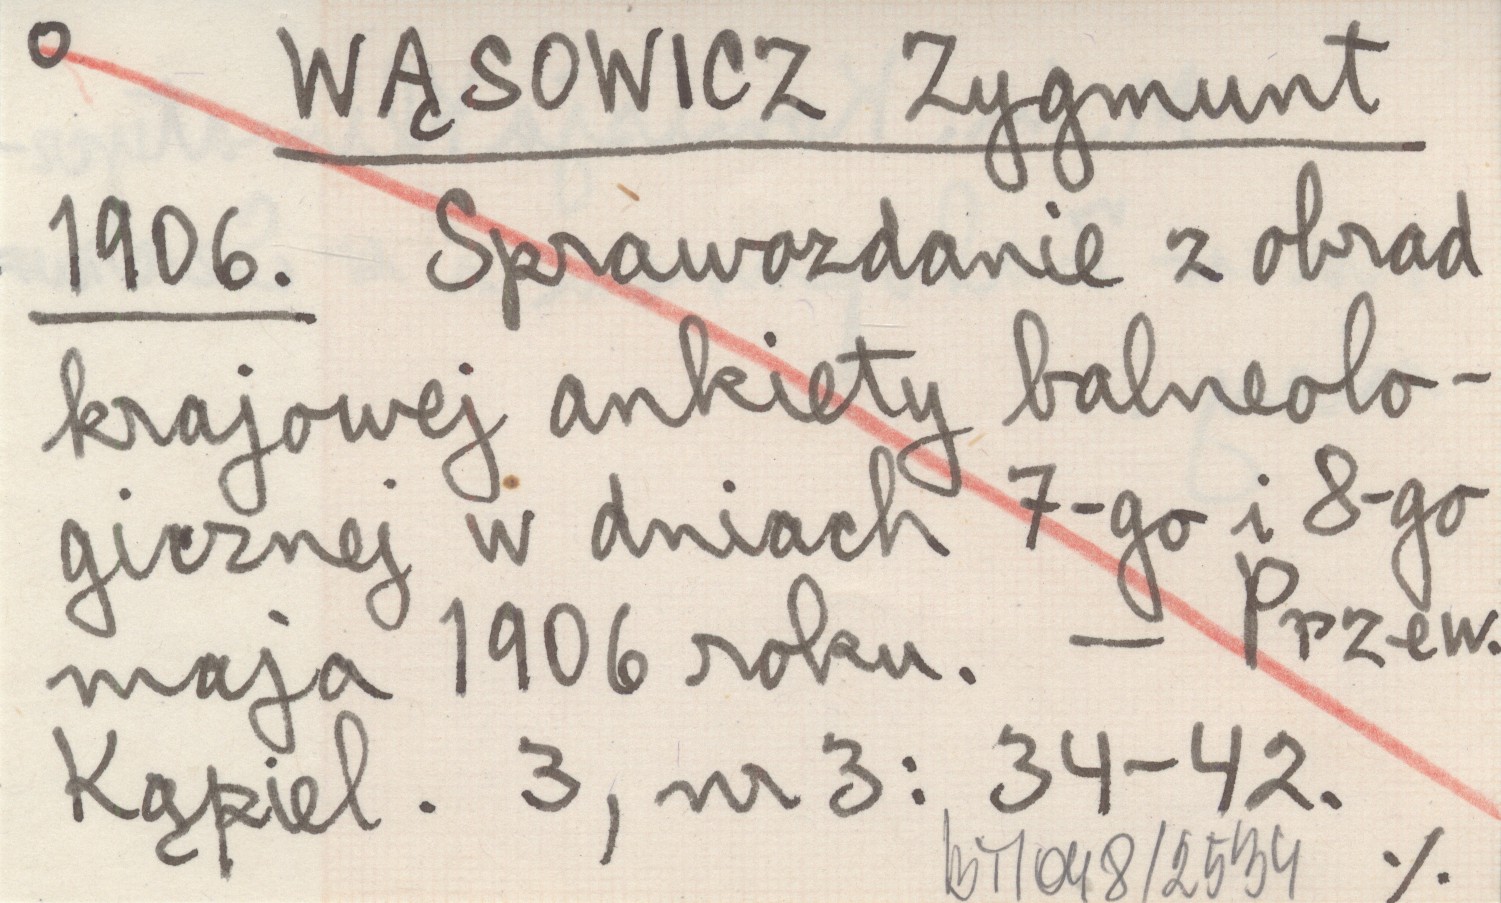 WĄSOWICZ Zygmunt
1906. Sprawozdanie z obrad
krajowej ankiety balneolo-
gicznej w dniach 7-go i 8-go
maja 1906 roku. — Przew.
Kąpiel. 3, nr 3: 34-42.
048/2534 ./.